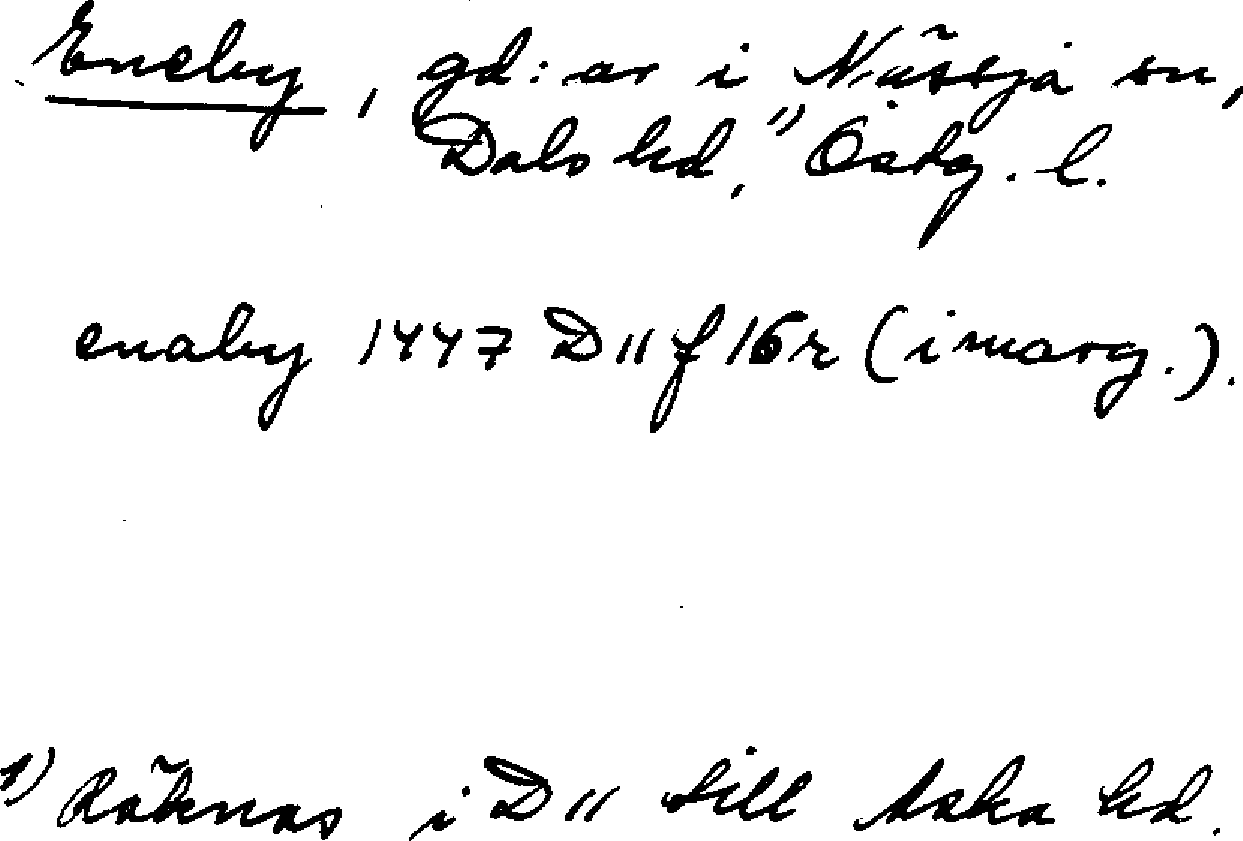 Eneby, gd:ar i Nässja sn,
Dals hd,¹⁾ Östg. l.
enaby 1447 D 11 f 16r (i marg.).
¹⁾ Räknas i D 11 till Aska hd.